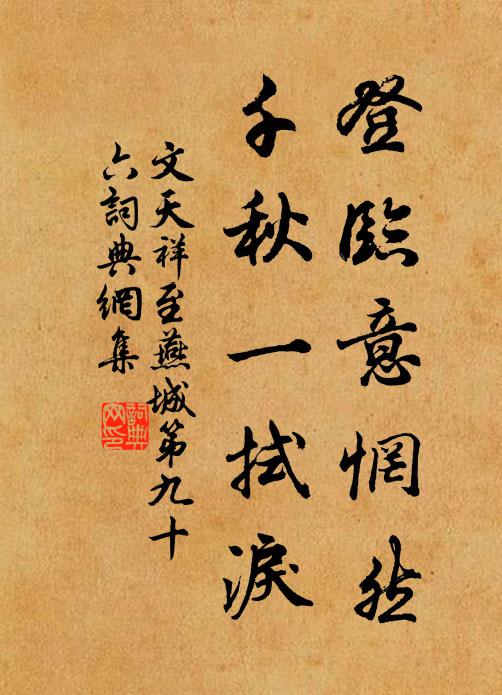 登臨意惘然
千秋一拭淚
文天祥至燕城第九十
六詞典網集
詞典
网印